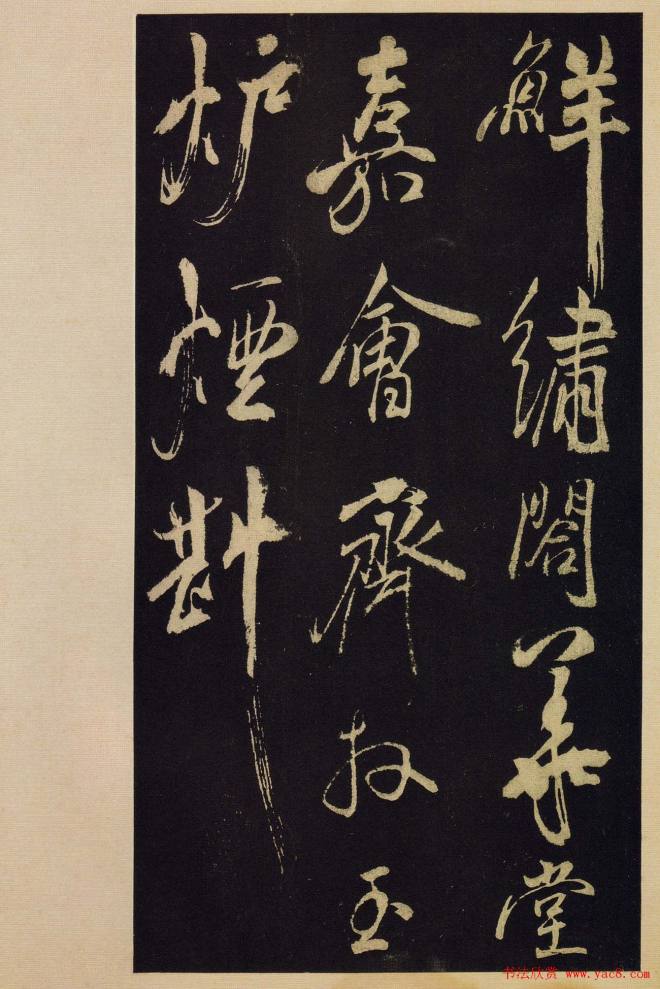 鮮繡閣華堂
嘉會齊拜玉
炉煙斟
书法欣赏 www.yac8.com